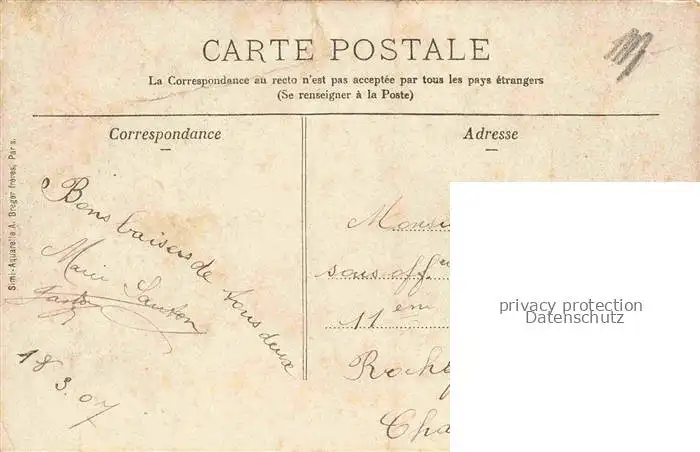 CARTE POSTALE
La Correspondance au recto n'est pas acceptée par tous les pays étrangers
(Se renseigner à la Poste)
Correspondance
Simi-Aquarelle A. Breger frères, Paris.
Bons baisers de tous deux
Marie
18 3. 07
Adresse
sous off
11ème
Roche
Cha
privacy protection
Datenschutz